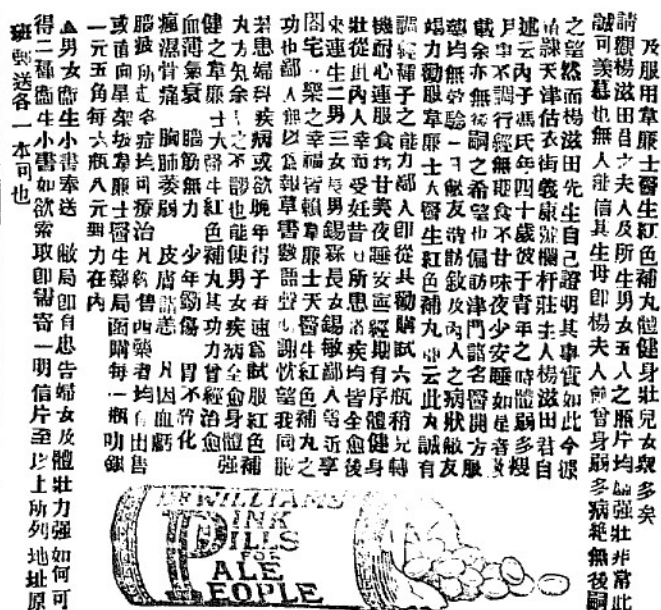 及服用韋廉士醫生紅色補丸體健身壯兒女衆多矣
請觀楊滋田君之夫人及所生男女五人之照片均強壯非常此
誠可羨慕也無人能信其生母即楊夫人前曾身弱多病絕無後嗣
之望然而楊滋田先生自己證明其事實如此今彼
天津估衣街義康號欄杆莊主人楊滋田君自
述云內子馮氏年四十歲彼于青年之時體弱多
月事不調行經無期食不甘味夜少安睡如是者
載余亦無後嗣之希望也偏訪津門諸名醫開方服
藥均無效驗一日敝友訪敘及內人之病狀敝友
竭力勸服韋廉士大醫生紅色補丸云此丸誠有
種子之能力鄙人即從其勸購試六瓶稍見轉
機耐心連服食甘美夜睡安經期有序體健身
壯從此內人幸而受妊昔日所患諸疾均皆全愈後
來連生二男三女長男錫霖長女錫敏鄙人等沂享
閤宅樂之幸福皆賴韋廉士大醫生紅色補丸之
功也鄙人無以爲報草書數語聲謝忱望我同胞
若患婦科疾病或欲晚年得子者速爲試服紅色補
丸方知余之不謬也能使男女疾病全愈身體強
健之韋廉士大醫生紅色補丸其功力曾經治愈
血薄氣衰 腦筋無力 少年 傷 胃不消化
瘋濕骨痛 胸肺萎弱 皮膚諸恙 凡因血虧
腦疲所起各症均可療治凡經售西藥者均有出售
或直向星架坡韋廉士醫生藥局函購每一瓶叻銀
一元五角每六瓶八元郵力在內
▲男女衞生小書奉送 敝局印有忠告婦女及體壯力强如何可
得二種衞生小書如欲索取即請寄一明信片至以上所列地址原
班郵送各一本可也
DR WILLIAMS
PINK
PILLS
FOR
PALE
PEOPLE